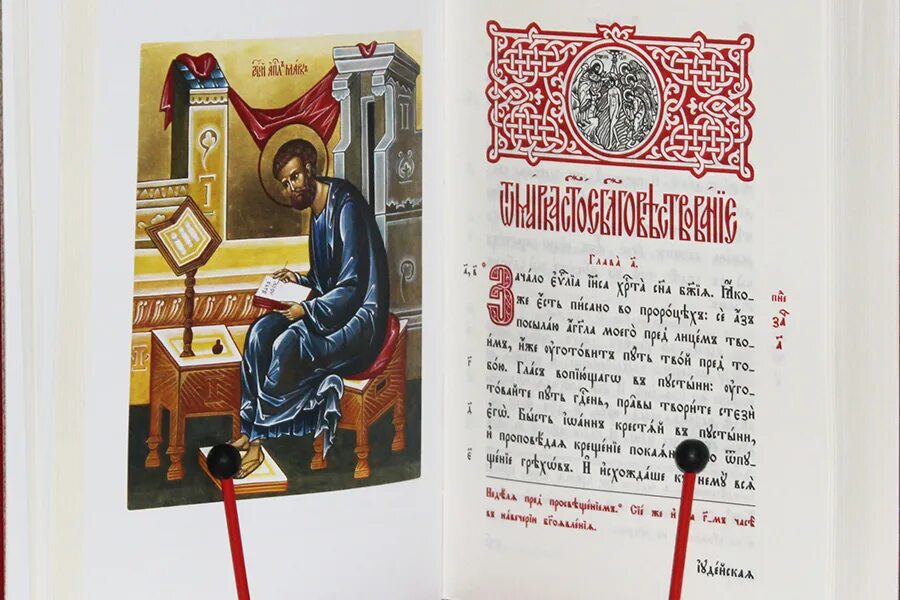 АГІЙ АПЛЪ МАРКЪ
Ѿ МАРКА СТОЕ БЛГОВѢСТВОВАНІЕ
Глава̀ а҃.
а҃, в҃
Зача́ло є҆ѵⷢ҇лїа і҆и҃са хрⷭ҇та̀ сн҃а бж҃їѧ. Ꙗ҆́ко-
же є҆́сть пи́сано во проро́цѣхъ: сѐ а҆́зъ
посыла́ю а҆́гг҃ла моего̀ пред̾ лице́мъ тво-
и́мъ, и҆́же ᲂу҆гото́витъ пꙋ́ть тво́й пред̾ то-
бо́ю. Гла́съ вопїю́щагѡ въ пꙋсты́ни: ᲂу҆го-
то́вайте пꙋ́ть гдⷭ҇ень, пра́вы твори́те стєзѝ
є҆гѡ̀. Бы́сть і҆ѡа́ннъ крестѧ́й въ пꙋсты́ни,
и҆ проповѣ́даѧ креще́нїе покаѧ́
ѿпꙋ-
ще́нїе грѣхѡ́въ. И҆ и҆схожда́ше къ немꙋ̀ всѧ̀
Недѣ́лѧ пред̾ просвѣще́нїемъ. Сїѐ же
часѣ̀
въ наве́черїи бг҃оѧвле́нїѧ.
і҆ꙋде́йскаѧ